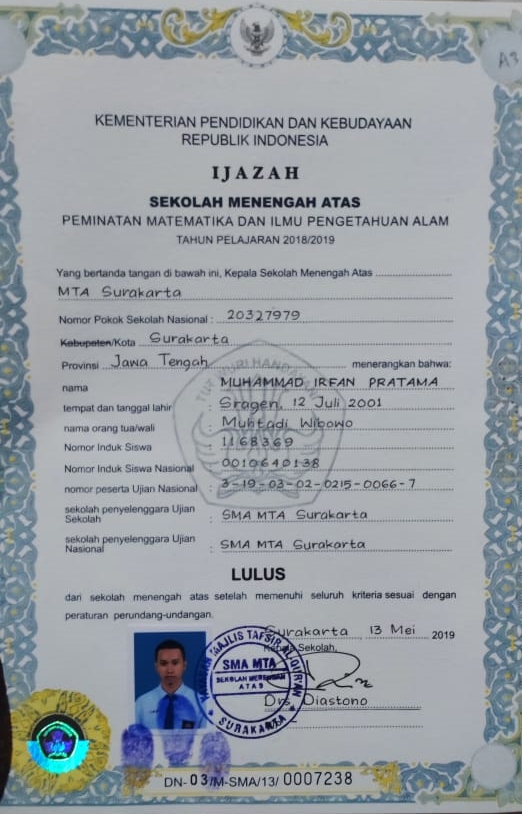 A3
KEMENTERIAN PENDIDIKAN DAN KEBUDAYAAN
REPUBLIK INDONESIA
IJAZAH
SEKOLAH MENENGAH ATAS
PEMINATAN MATEMATIKA DAN ILMU PENGETAHUAN ALAM
TAHUN PELAJARAN 2018/2019
Yang bertanda tangan di bawah ini, Kepala Sekolah Menengah Atas
MTA Surakarta
Nomor Pokok Sekolah Nasional : 20327979
Kabupaten/Kota Surakarta
Provinsi Jawa Tengah menerangkan bahwa:
TUT WURI HANDAYANI
nama : MUHAMMAD IRFAN PRATAMA
tempat dan tanggal lahir : Sragen, 12 Juli 2001
nama orang tua/wali : Muhtadi Wibowo
Nomor Induk Siswa : 1168369
Nomor Induk Siswa Nasional : 0010640138
nomor peserta Ujian Nasional : 3-19-03-02-0215-0066-7
sekolah penyelenggara Ujian
Sekolah : SMA MTA Surakarta
sekolah penyelenggara Ujian
Nasional : SMA MTA Surakarta
LULUS
dari sekolah menengah atas setelah memenuhi seluruh kriteria sesuai dengan
peraturan perundang-undangan.
Surakarta 13 Mei 2019
Kepala Sekolah,
YAYASAN MAJLIS TAFSIR AL-QUR'AN
SMA MTA
SEKOLAH MENENGAH
ATAS
SURAKARTA
Drs. Diastono
DN-03/M-SMA/13/ 0007238